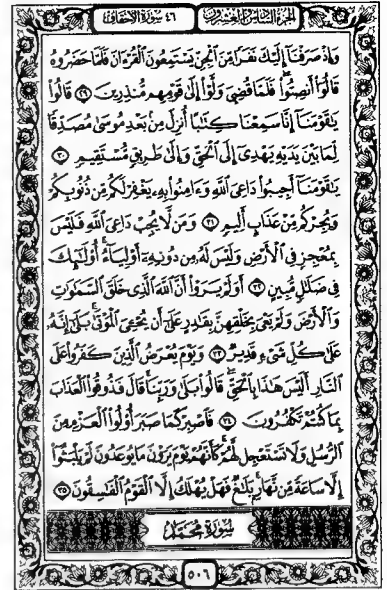 الجزء السادس والعشرون ٤٦ سورة الأحقاف
وَإِذْ صَرَفْنَآ إِلَيْكَ نَفَرًا مِّنَ ٱلْجِنِّ يَسْتَمِعُونَ ٱلْقُرْءَانَ فَلَمَّا حَضَرُوهُ
قَالُوٓا۟ أَنصِتُوا۟ فَلَمَّا قُضِىَ وَلَّوْا۟ إِلَىٰ قَوْمِهِم مُّنذِرِينَ ٢٩ قَالُوا۟
يَٰقَوْمَنَآ إِنَّا سَمِعْنَا كِتَٰبًا أُنزِلَ مِنۢ بَعْدِ مُوسَىٰ مُصَدِّقًا
لِّمَا بَيْنَ يَدَيْهِ يَهْدِىٓ إِلَى ٱلْحَقِّ وَإِلَىٰ طَرِيقٍ مُّسْتَقِيمٍ ٣٠
يَٰقَوْمَنَآ أَجِيبُوا۟ دَاعِىَ ٱللَّهِ وَءَامِنُوا۟ بِهِۦ يَغْفِرْ لَكُم مِّن ذُنُوبِكُمْ
وَيُجِرْكُم مِّنْ عَذَابٍ أَلِيمٍ ٣١ وَمَن لَّا يُجِبْ دَاعِىَ ٱللَّهِ فَلَيْسَ
بِمُعْجِزٍ فِى ٱلْأَرْضِ وَلَيْسَ لَهُۥ مِن دُونِهِۦٓ أَوْلِيَآءُ أُو۟لَٰٓئِكَ
فِى ضَلَٰلٍ مُّبِينٍ ٣٢ أَوَلَمْ يَرَوْا۟ أَنَّ ٱللَّهَ ٱلَّذِى خَلَقَ ٱلسَّمَٰوَٰتِ
وَٱلْأَرْضَ وَلَمْ يَعْىَ بِخَلْقِهِنَّ بِقَٰدِرٍ عَلَىٰٓ أَن يُحْۦِىَ ٱلْمَوْتَىٰ بَلَىٰٓ إِنَّهُۥ
عَلَىٰ كُلِّ شَىْءٍ قَدِيرٌ ٣٣ وَيَوْمَ يُعْرَضُ ٱلَّذِينَ كَفَرُوا۟ عَلَى
ٱلنَّارِ أَلَيْسَ هَٰذَا بِٱلْحَقِّ قَالُوا۟ بَلَىٰ وَرَبِّنَا قَالَ فَذُوقُوا۟ ٱلْعَذَابَ
بِمَا كُنتُمْ تَكْفُرُونَ ٣٤ فَٱصْبِرْ كَمَا صَبَرَ أُو۟لُوا۟ ٱلْعَزْمِ مِنَ
ٱلرُّسُلِ وَلَا تَسْتَعْجِل لَّهُمْ كَأَنَّهُمْ يَوْمَ يَرَوْنَ مَا يُوعَدُونَ لَمْ يَلْبَثُوٓا۟
إِلَّا سَاعَةً مِّن نَّهَارٍۭ بَلَٰغٌ فَهَلْ يُهْلَكُ إِلَّا ٱلْقَوْمُ ٱلْفَٰسِقُونَ ٣٥
سورة محمد
٥٠٦